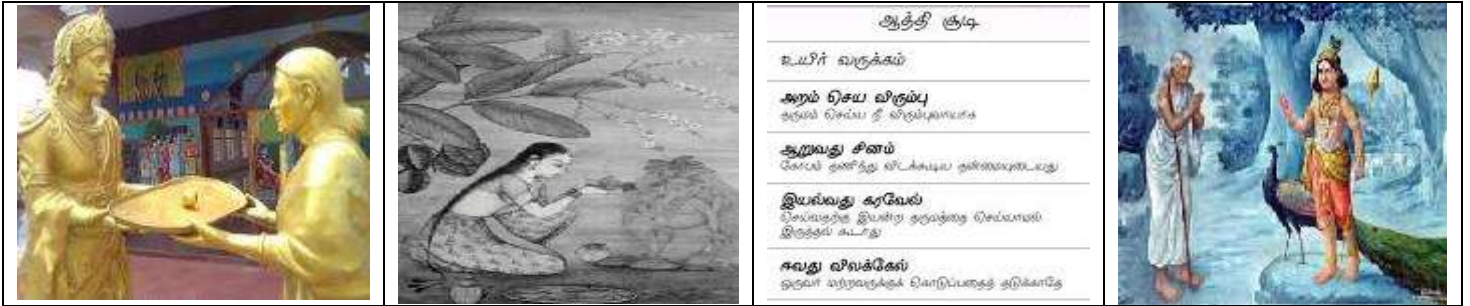 ஆத்தி சூடி
உயிர் வருக்கம்
அறம் செய விரும்பு
தருமம் செய்ய நீ விரும்புவாயாக
ஆறுவது சினம்
கோபம் தணிந்து விடக்கூடிய தன்மையுடையது
இயல்வது கரவேல்
செய்வதற்கு இயன்ற தருமத்தை செய்யாமல்
இருத்தல் கூடாது
ஈவது விலக்கேல்
ஒருவர் மற்றவருக்குக் கொடுப்பதைத் தடுக்காதே